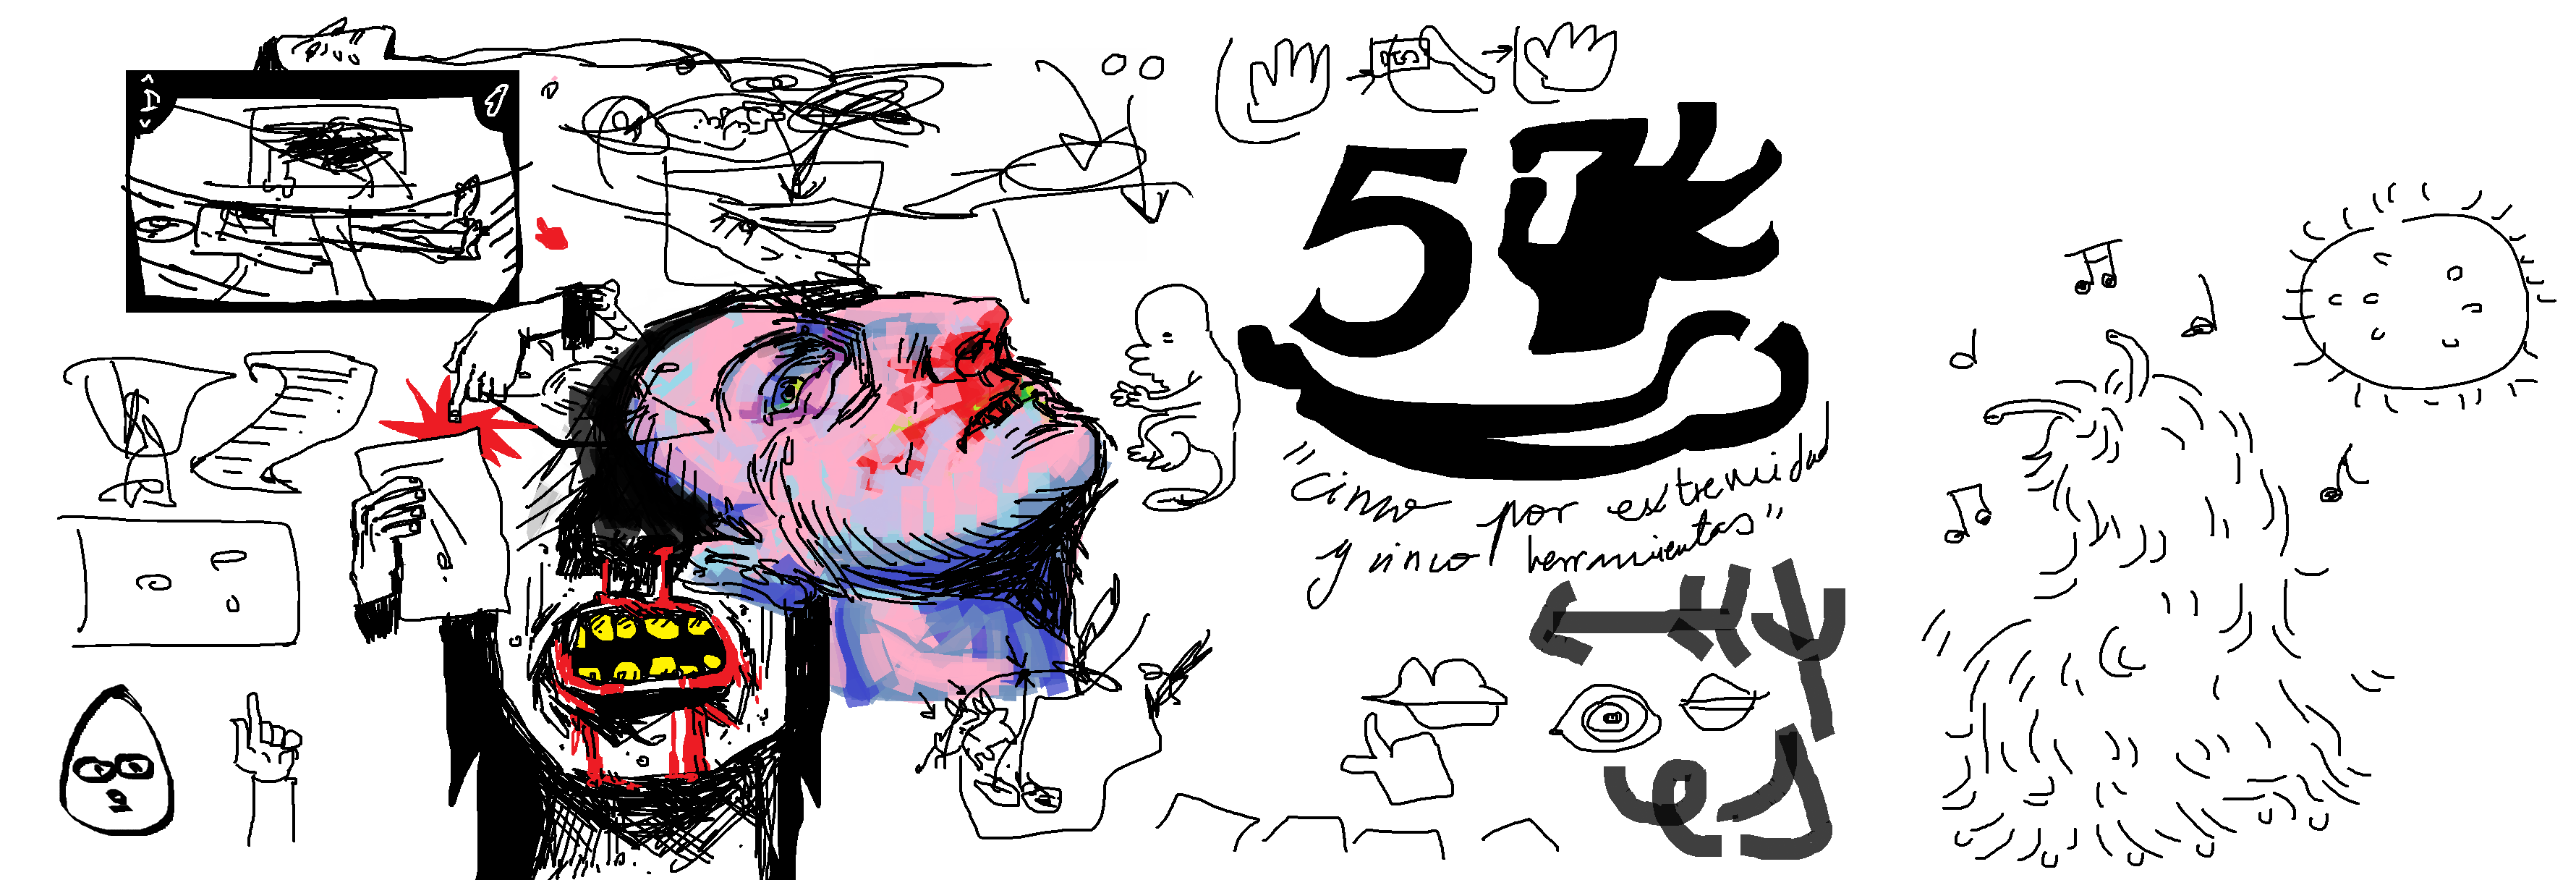 <A>
1
5
5
"cinco por extremidad
y cinco herramientas"